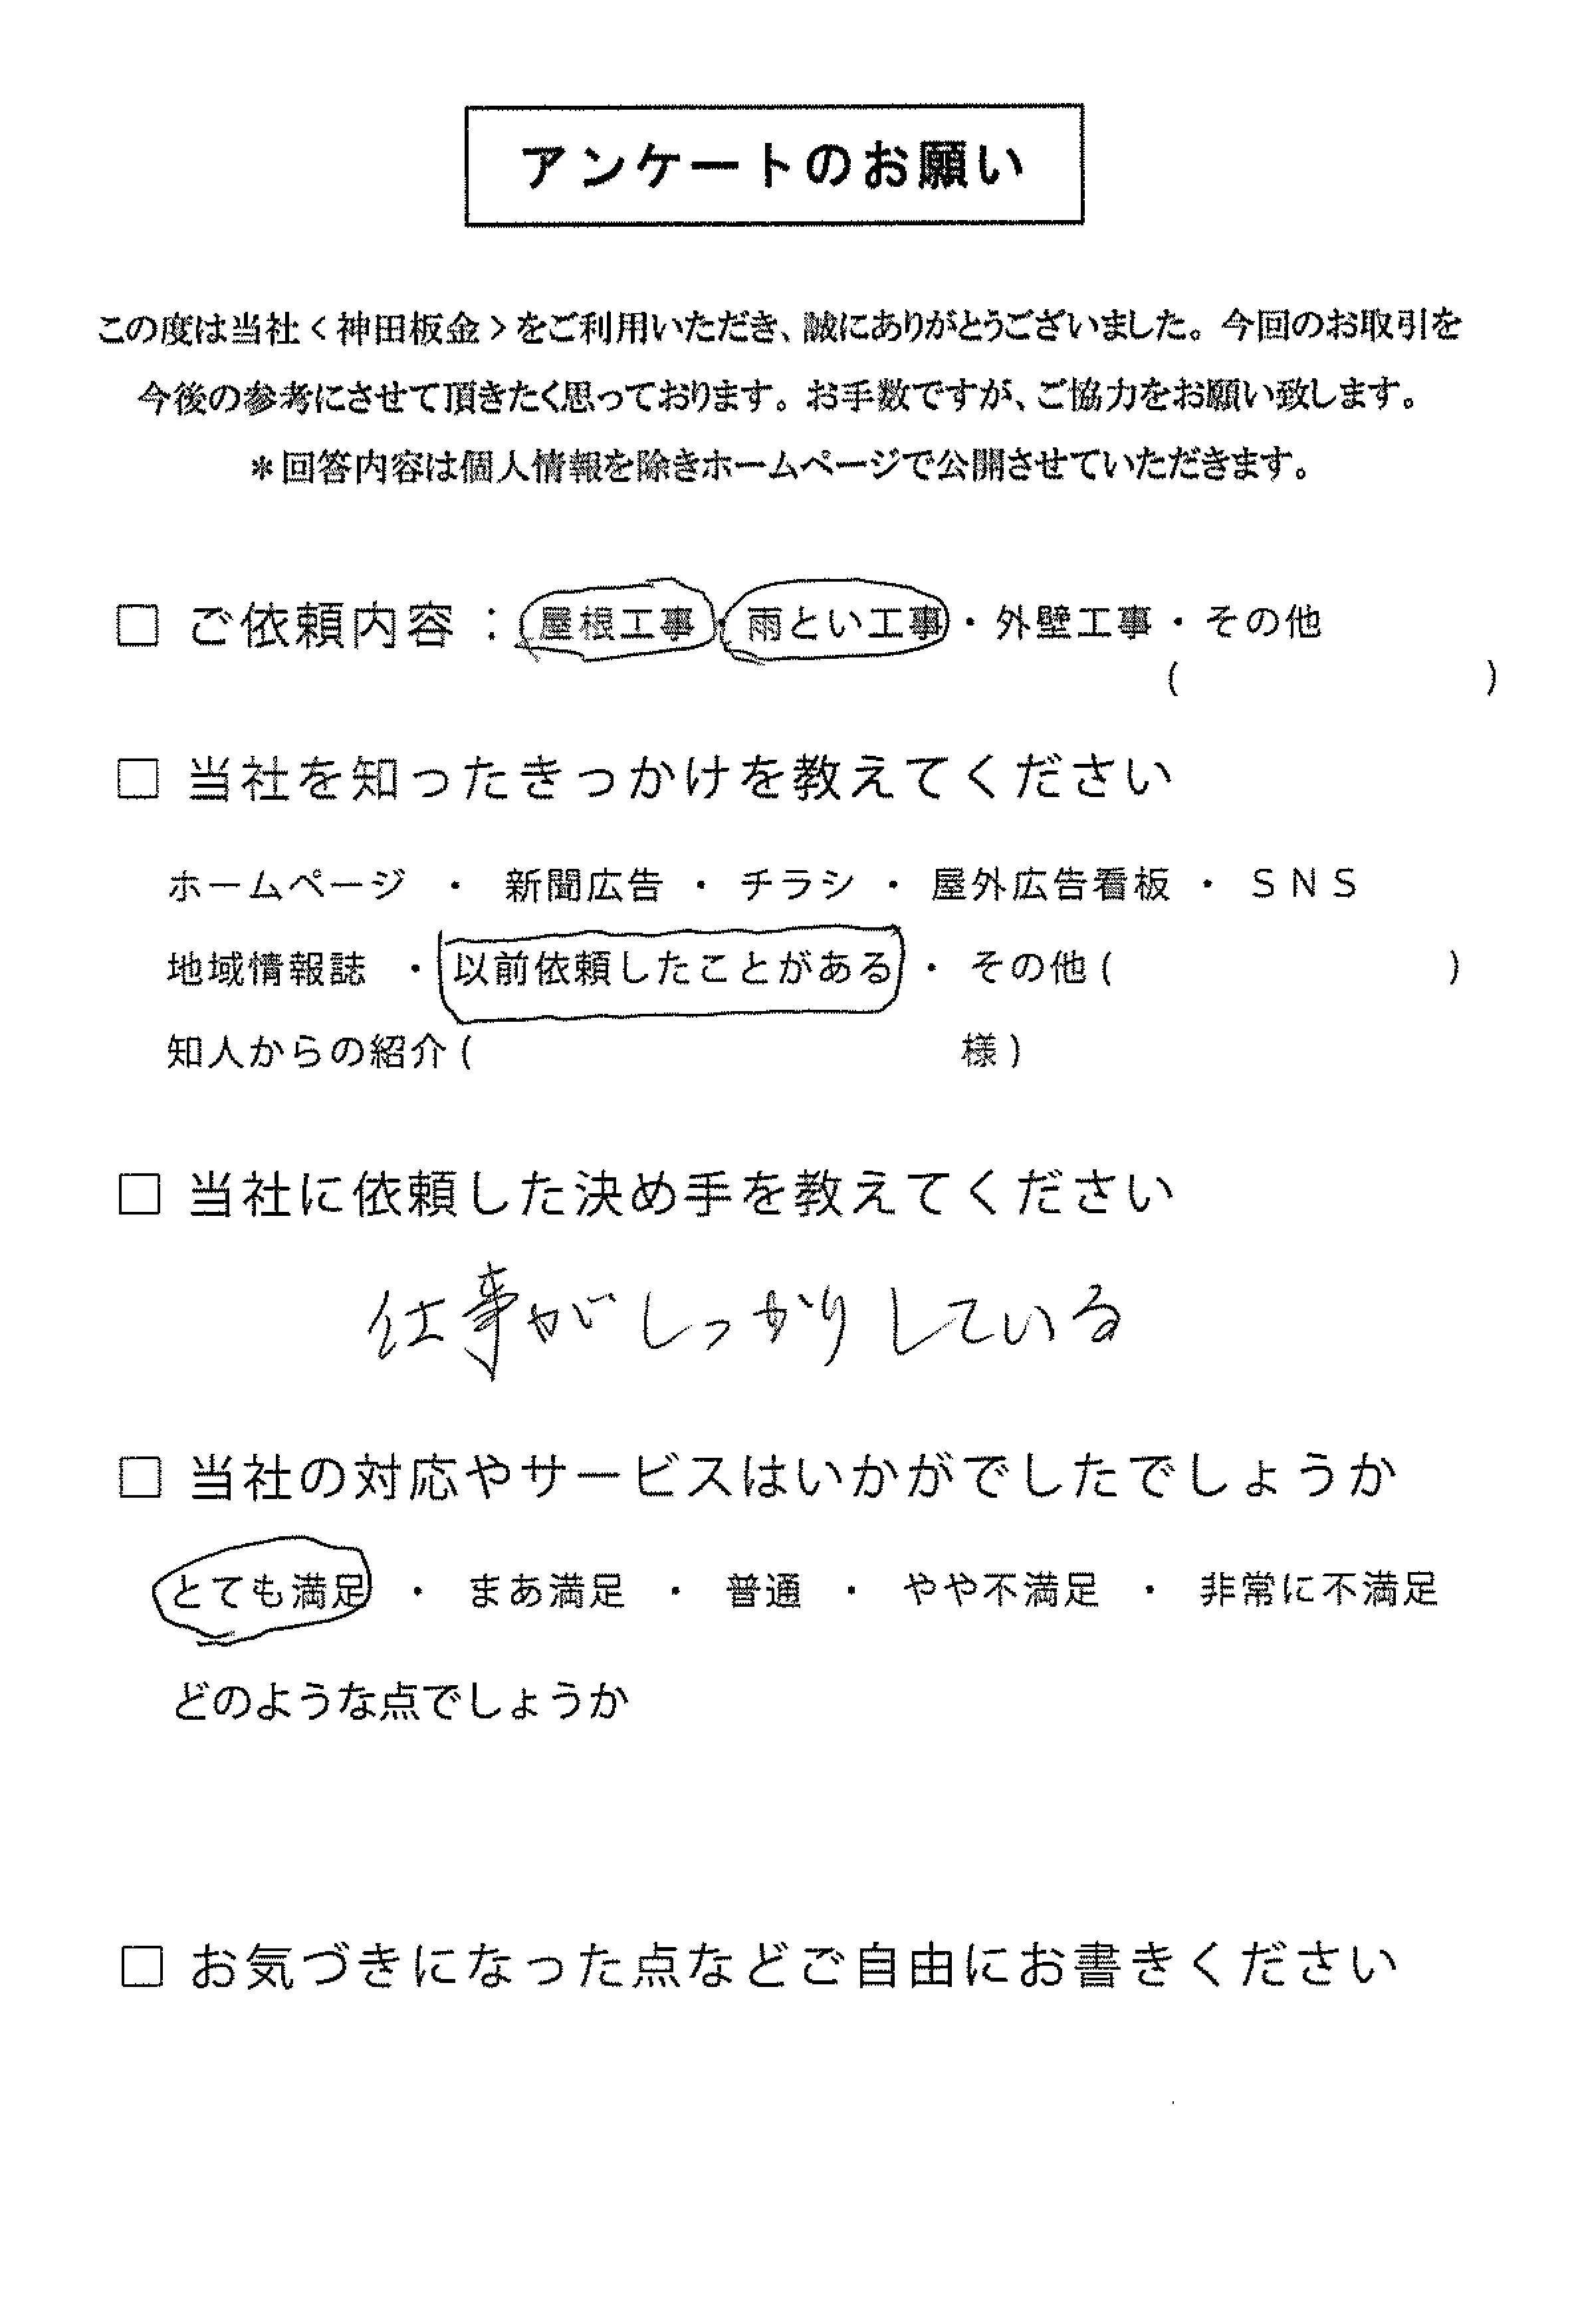 アンケートのお願い
この度は当社＜神田板金＞をご利用いただき、誠にありがとうございました。今回のお取引を
今後の参考にさせて頂きたく思っております。お手数ですが、ご協力をお願い致します。
＊回答内容は個人情報を除きホームページで公開させていただきます。
□ ご依頼内容：屋根工事・雨とい工事・外壁工事・その他
(　　　　　　　)
□ 当社を知ったきっかけを教えてください
ホームページ ・ 新聞広告 ・ チラシ ・ 屋外広告看板 ・ ＳＮＳ
地域情報誌 ・ 以前依頼したことがある ・ その他 (　　　　　　　)
知人からの紹介 (　　　　　　　　　　　様)
□ 当社に依頼した決め手を教えてください
仕事がしっかりしている
□ 当社の対応やサービスはいかがでしたでしょうか
とても満足 ・ まあ満足 ・ 普通 ・ やや不満足 ・ 非常に不満足
どのような点でしょうか
□ お気づきになった点などご自由にお書きください